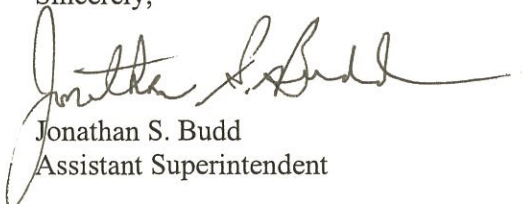 Sincerely,
Jonathan S. Budd
Jonathan S. Budd
Assistant Superintendent